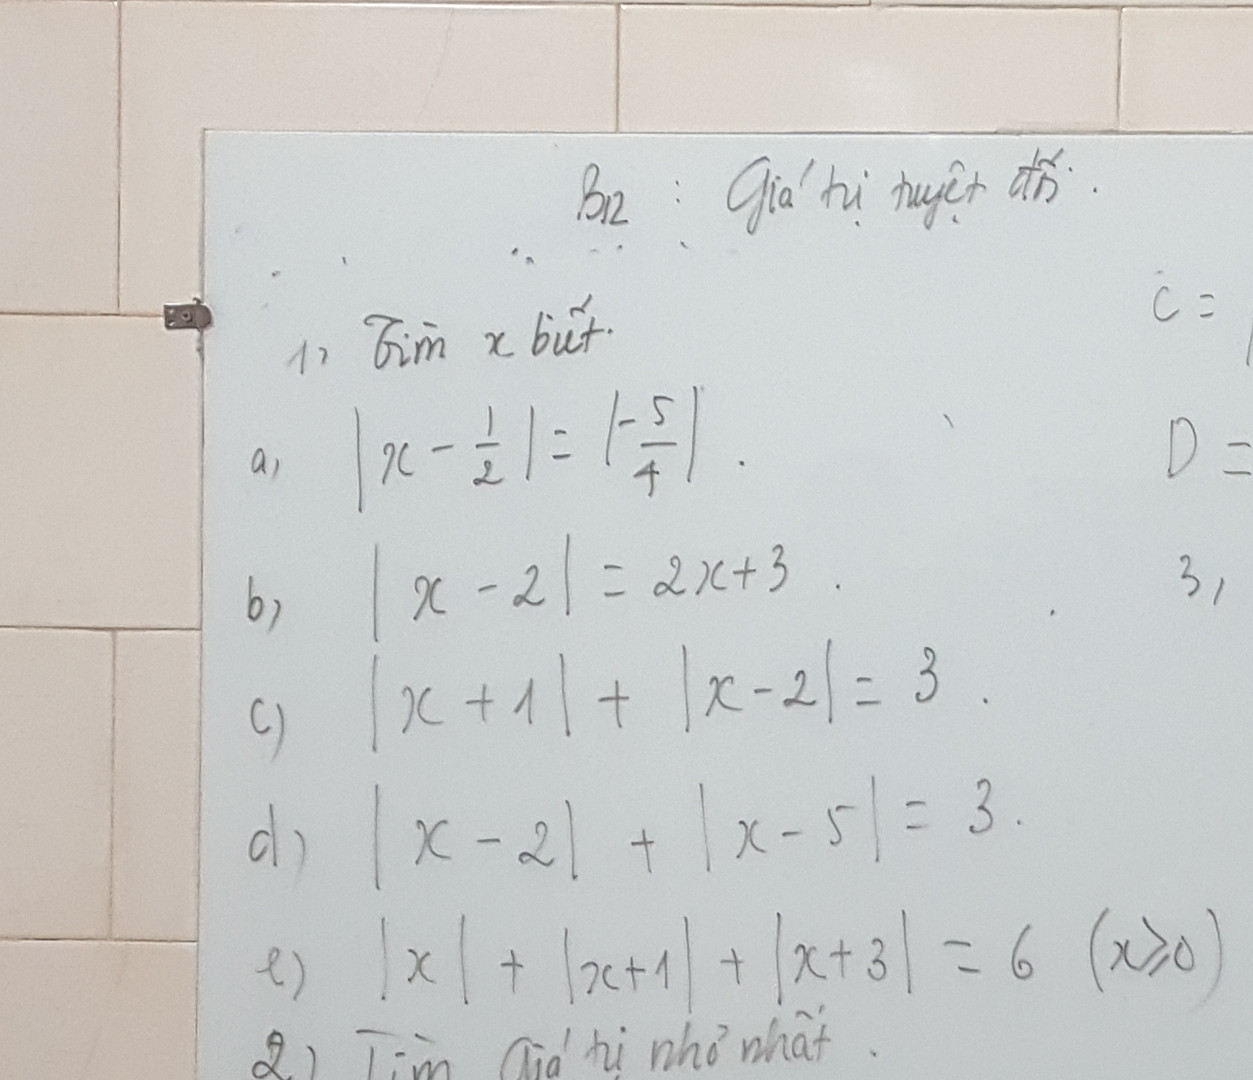 B12 : Giá trị tuyệt đối.
1, Tìm x biết.
a, |x - 1/2| = |-5/4|.
b, |x - 2| = 2x+3.
c) |x + 1| + |x - 2| = 3.
d) |x - 2| + |x - 5| = 3.
e) |x| + |x+1| + |x+3| = 6 (x⩾0)
2) Tìm Giá trị nhỏ nhất.
C =
D =
3,